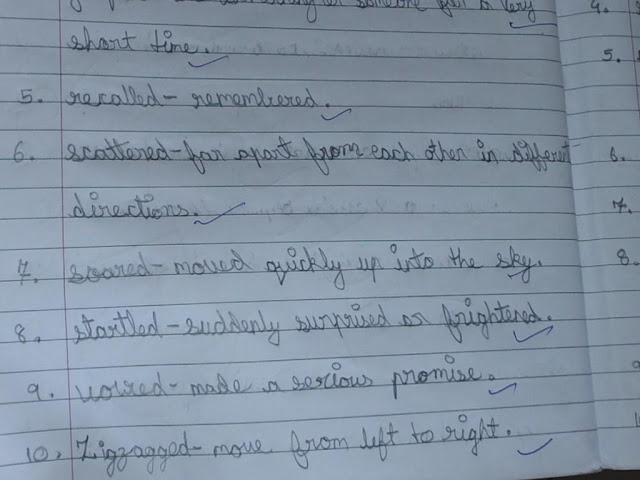 someone for a very
short time.
5. recalled- remembered.
6. scattered-far apart from each other in different
directions.
7. soared- moved quickly up into the sky.
8. startled-suddenly surprised or frightened.
9. vowed- made a serious promise.
10. Zigzagged- move from left to right.
4.
5.
6.
7.
8.
9
1